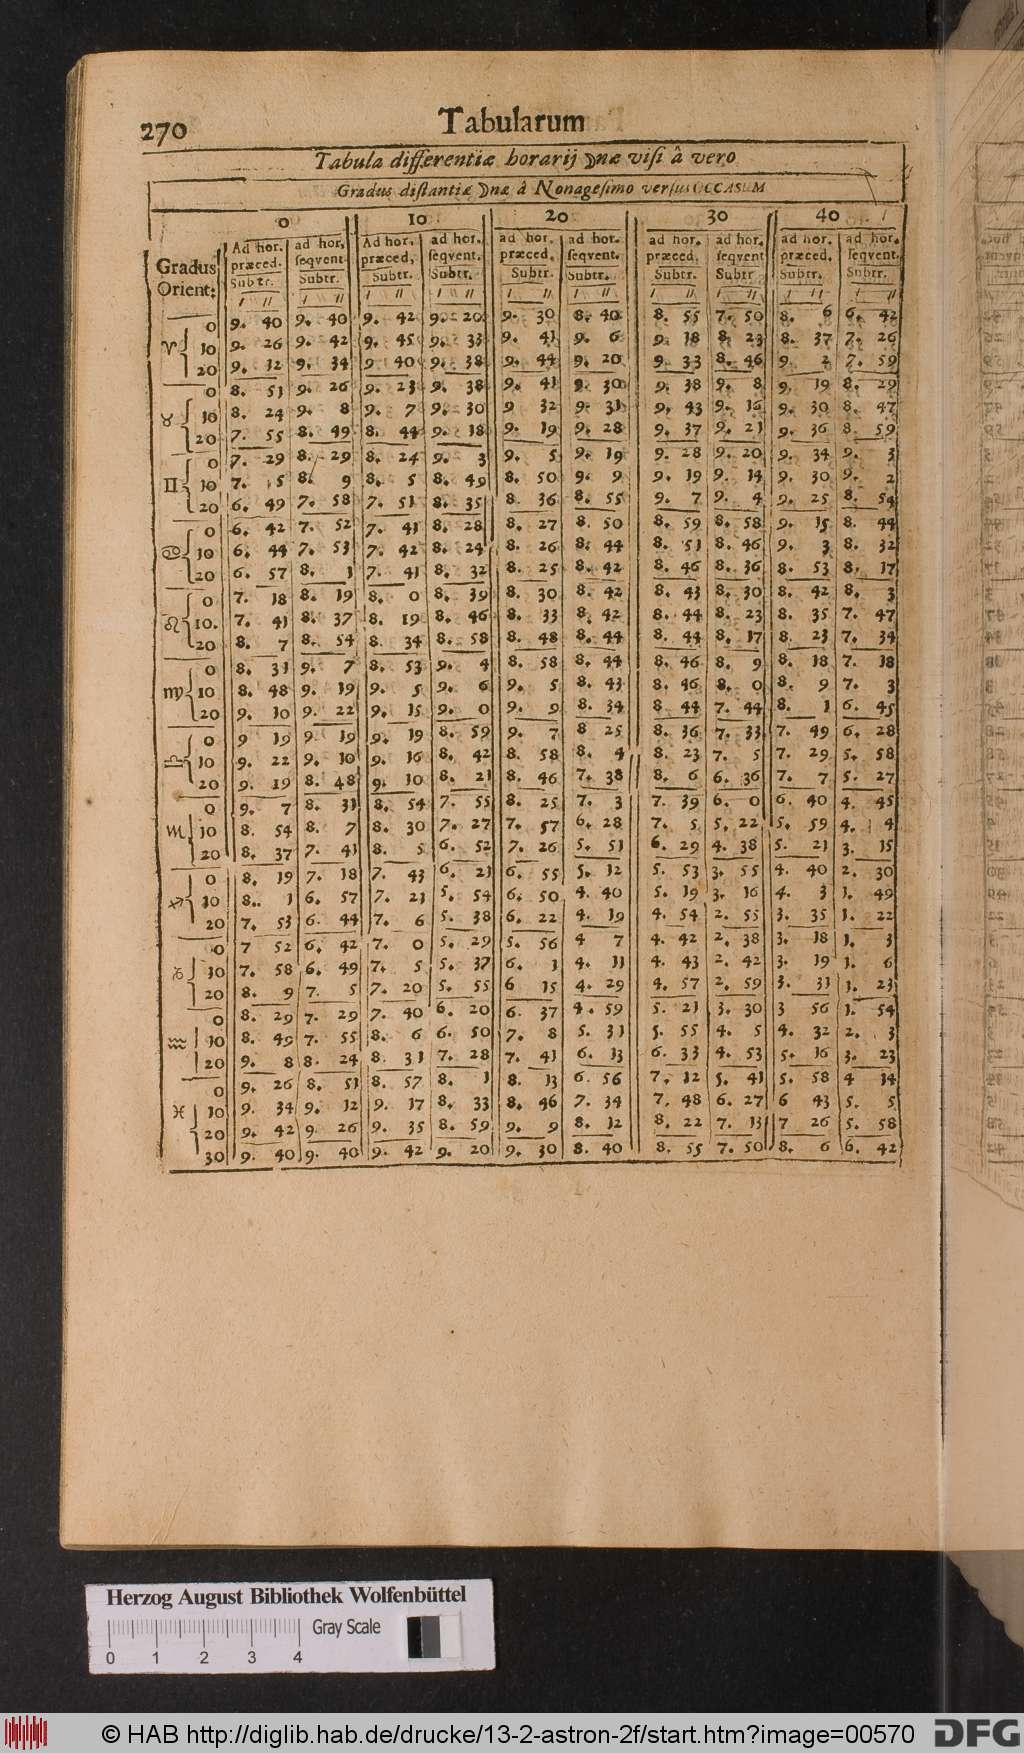 270 Tabularum
Tabula differentiæ horarij ☽næ visi â vero
Gradus distantiæ ☽næ â Nonagesimo versus OCCASUM
0 10 20 30 40
Gradus Orient: Ad hor. præced. ad hor. seqvent Ad hor. præced, ad hor. seqvent. ad hor. præced. ad hor. seqvent. ad hor. præced. ad hor. seqvent ad hor. præced. ad hor. seqvent.
Subtr. Subtr. Subtr. Subtr. Subtr. Subtr. Subtr. Subtr Subtr. Subtr.
ı ıı ı ıı ı ıı ı ıı ı ıı ı ıı ı ıı ı ıı ı ıı ı ıı
0 9. 40 9. 40 9. 42 9. 20 9. 30 8. 40 8. 55 7. 50 8. 6 6. 42
♈ 10 9. 26 9. 42 9. 45 9. 33 9. 41 9. 6 9. 18 8. 23 8. 37 7. 26
20 9. 12 9. 34 9 40 9. 38 9. 44 9. 20 9. 33 8. 46 9. 2 7. 59
0 8. 51 9. 26 9. 23 9. 38 9. 41 9. 30 9. 38 9. 8 9. 19 8. 29
♉ 10 8. 24 9. 8 9. 7 9. 30 9 32 9. 31 9. 43 9. 16 9. 30 8. 47
20 7. 55 8. 49 8. 44 9. 18 9. 19 9. 28 9. 37 9. 21 9. 36 8. 59
0 7. 29 8. 29 8. 24 9. 3 9. 5 9. 19 9. 28 9. 20 9. 34 9. 3
♊ 10 7. 5 8. 9 8. 5 8. 49 8. 50 9. 9 9. 19 9. 14 9. 30 9. 2
20 6. 49 7. 58 7. 51 8. 35 8. 36 8. 55 9. 7 9. 4 9. 25 8. 54
0 6. 42 7. 52 7. 41 8. 28 8. 27 8. 50 8. 59 8. 58 9. 15 8. 44
♋ 10 6. 44 7. 53 7. 42 8. 24 8. 26 8. 44 8. 51 8. 46 9. 3 8. 32
20 6. 57 8. 1 7. 41 8. 32 8. 25 8. 42 8. 46 8. 36 8. 53 8. 17
0 7. 18 8. 19 8. 0 8. 39 8. 30 8. 42 8. 43 8. 30 8. 42 8. 3
♌ 10. 7. 41 8. 37 8. 19 8. 46 8. 33 8. 42 8. 44 8. 23 8. 35 7. 47
20 8. 7 8. 54 8. 34 8. 58 8. 48 8. 44 8. 44 8. 17 8. 23 7. 34
0 8. 31 9. 7 8. 53 9. 4 8. 58 8. 44 8. 46 8. 9 8. 18 7. 18
♍ 10 8. 48 9. 19 9. 5 9. 6 9. 5 8. 43 8. 46 8. 0 8. 9 7. 3
20 9. 10 9. 22 9. 15 9. 0 9. 9 8. 34 8 44 7. 44 8. 1 6. 45
0 9 19 9. 19 9. 19 8. 59 9. 7 8 25 8. 36 7. 33 7. 49 6. 28
♎ 10 9. 22 9. 10 9. 16 8. 42 8. 58 8. 4 8. 23 7. 5 7. 29 5. 58
20 9. 19 8. 48 9. 10 8. 21 8. 46 7. 38 8. 6 6. 36 7. 7 5. 27
0 9. 7 8. 31 8. 54 7. 55 8. 25 7. 3 7. 39 6. 0 6. 40 4. 45
♏ 10 8. 54 8. 7 8. 30 7. 27 7. 57 6. 28 7. 5 5. 22 5. 59 4. 4
20 8. 37 7. 41 8. 5 6. 52 7. 26 5. 51 6. 29 4. 38 5. 21 3. 15
0 8. 19 7. 18 7. 43 6. 21 6. 55 5. 12 5. 53 3. 55 4. 40 2. 30
♐ 10 8. 1 6. 57 7. 21 5. 54 6. 50 4. 40 5. 19 3. 16 4. 3 1. 49
20 7. 53 6. 44 7. 6 5. 38 6. 22 4. 19 4. 54 2. 55 3. 35 1. 22
0 7 52 6. 42 7. 0 5. 29 5. 56 4 7 4. 42 2. 38 3. 18 1. 3
♑ 10 7. 58 6. 49 7. 5 5. 37 6. 1 4. 11 4. 43 2. 42 3. 19 1. 6
20 8. 9 7. 5 7. 20 5. 55 6 15 4. 29 4. 57 2. 59 3. 31 1. 23
0 8. 29 7. 29 7. 40 6. 20 6. 37 4. 59 5. 21 3. 30 3 56 1. 54
♒ 10 8. 49 7. 55 8. 6 6. 50 7. 8 5. 31 5. 55 4. 5 4. 32 2. 3
20 9. 8 8. 24 8. 31 7. 28 7. 41 6. 13 6. 33 4. 53 5. 16 3. 23
0 9. 26 8. 51 8. 57 8. 1 8. 13 6. 56 7. 12 5. 41 5. 58 4 14
♓ 10 9. 34 9. 12 9. 17 8. 33 8. 46 7. 34 7. 48 6. 27 6 43 5. 5
20 9. 42 9. 26 9. 35 8. 59 9. 9 8. 12 8. 22 7. 13 7 26 5. 58
30 9. 40 9. 40 9. 42 9. 20 9. 30 8. 40 8. 55 7. 50 8. 6 6. 42
Herzog August Bibliothek Wolfenbüttel
Gray Scale
0 1 2 3 4
© HAB http://diglib.hab.de/drucke/13-2-astron-2f/start.htm?image=00570 DFG